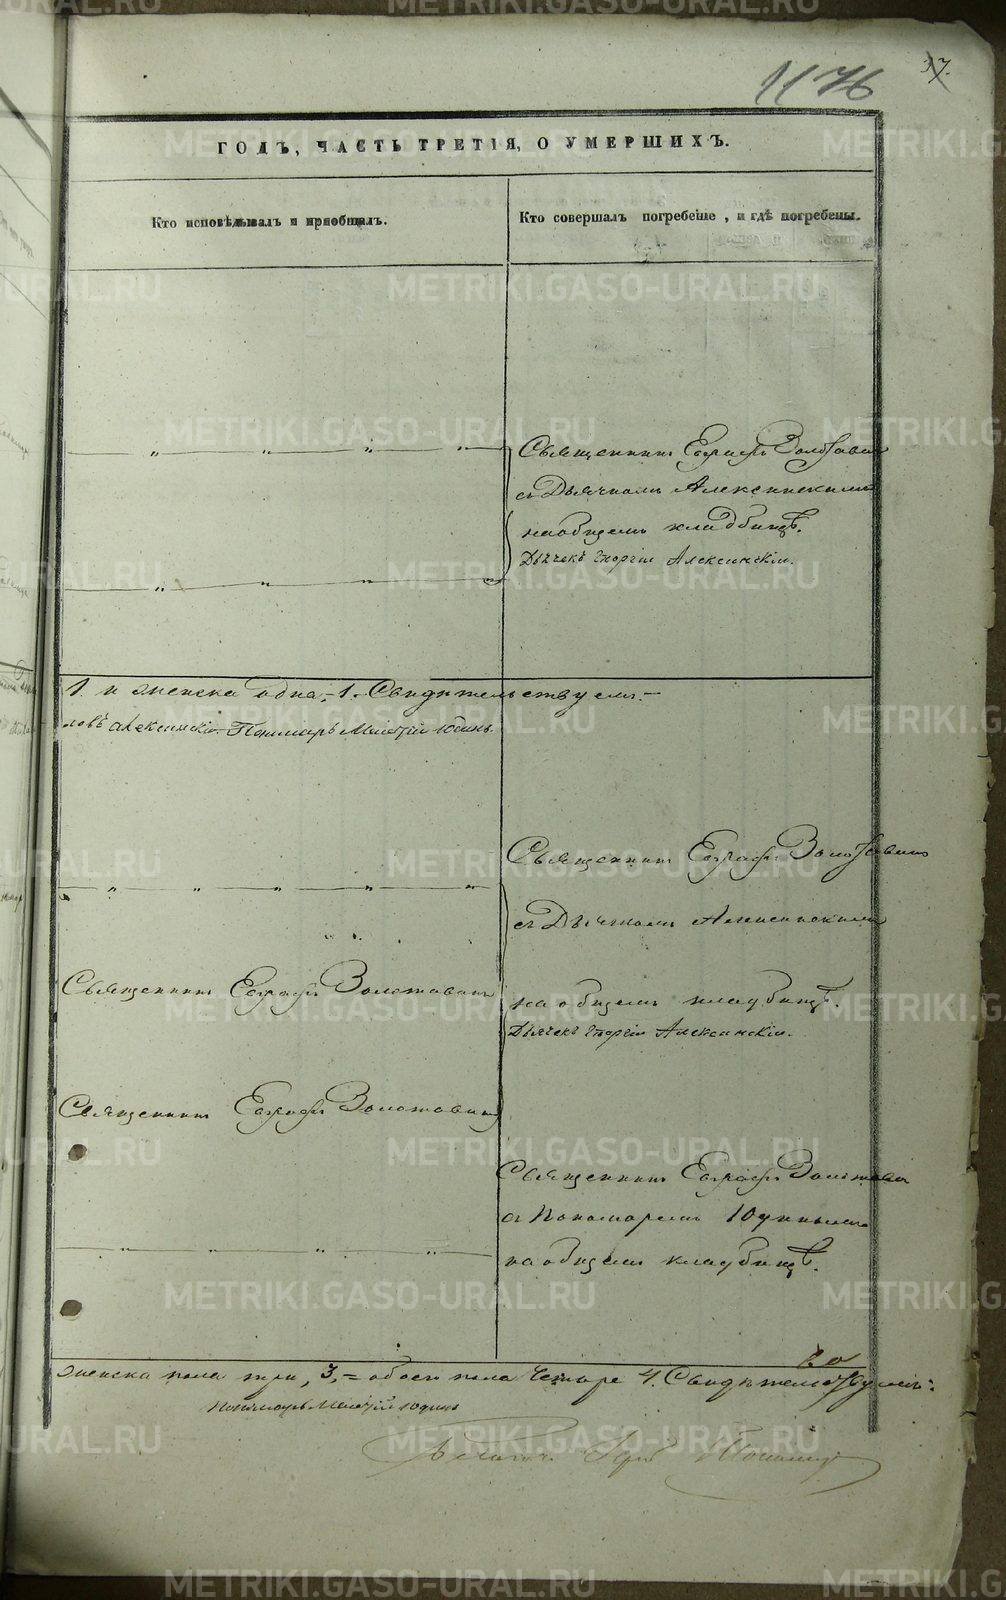 37.
1176
ГОДЪ, ЧАСТЬ ТРЕТІЯ, О УМЕРШИХЪ.
Кто исповѣдывалъ и пріобщалъ.
Кто совершалъ погребеніе, и гдѣ погребены.
Священникъ Евграфъ Золотавинъ
съ Дьячкомъ Алексинскимъ
на общемъ кладбищѣ.
Дьячекъ Георгій Алексинскій.
1. и женска одна,- 1. Свидѣтельствуемъ:-
ловъ Алексинскій. Пономарь Мелетій Юдинъ.
Священникъ Евграфъ Золотавинъ
съ Дьячкомъ Алексинскимъ
Священникъ Евграфъ Золотавинъ
на общемъ кладбищѣ.
Дьячекъ Георгій Алексинскій.
Священникъ Евграфъ Золотавинъ
Священникъ Евграфъ Золотавинъ
съ Пономаремъ Юдинымъ
на общемъ кладбищѣ.
женска пола три, 3, = обоего пола четыре 4. Свидѣтельствуемъ:
Пономарь Мелетій Юдинъ
METRIKI.GASO-URAL.RU